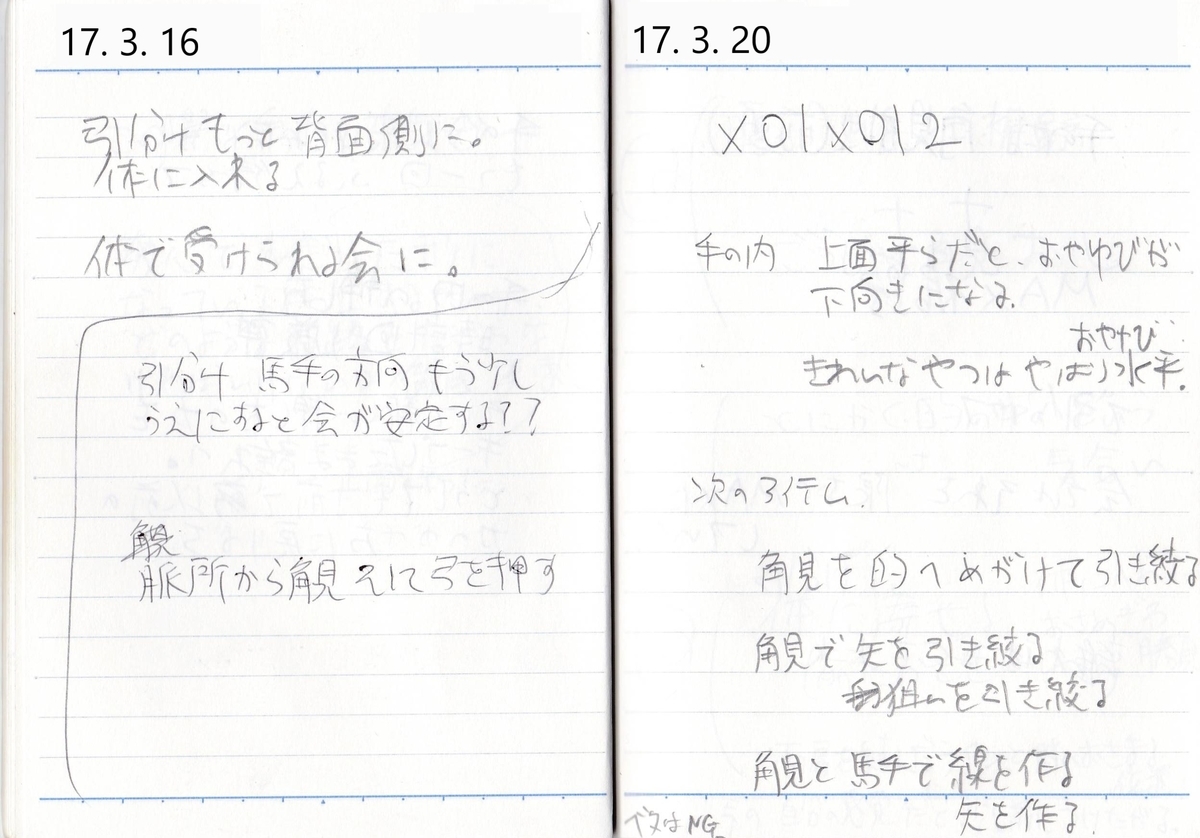 17. 3. 16
引分け もっと 背面側に。
体に入来る
体で受けられる会に。
引分け 馬手の方向 もう少し
うえにすると会が安定する??
脈所から角見 そして弓を押す
17. 3. 20
x01x012
手の内 上面平らだと、おやゆびが
下向きになる。
おやゆび
きれいなやつは やはり水平。
次のアイテム
角見を的へめがけて引き絞る
角見で矢を引き絞る
狙いを引き絞る
角見と馬手で線を作る
矢を作る
はNG